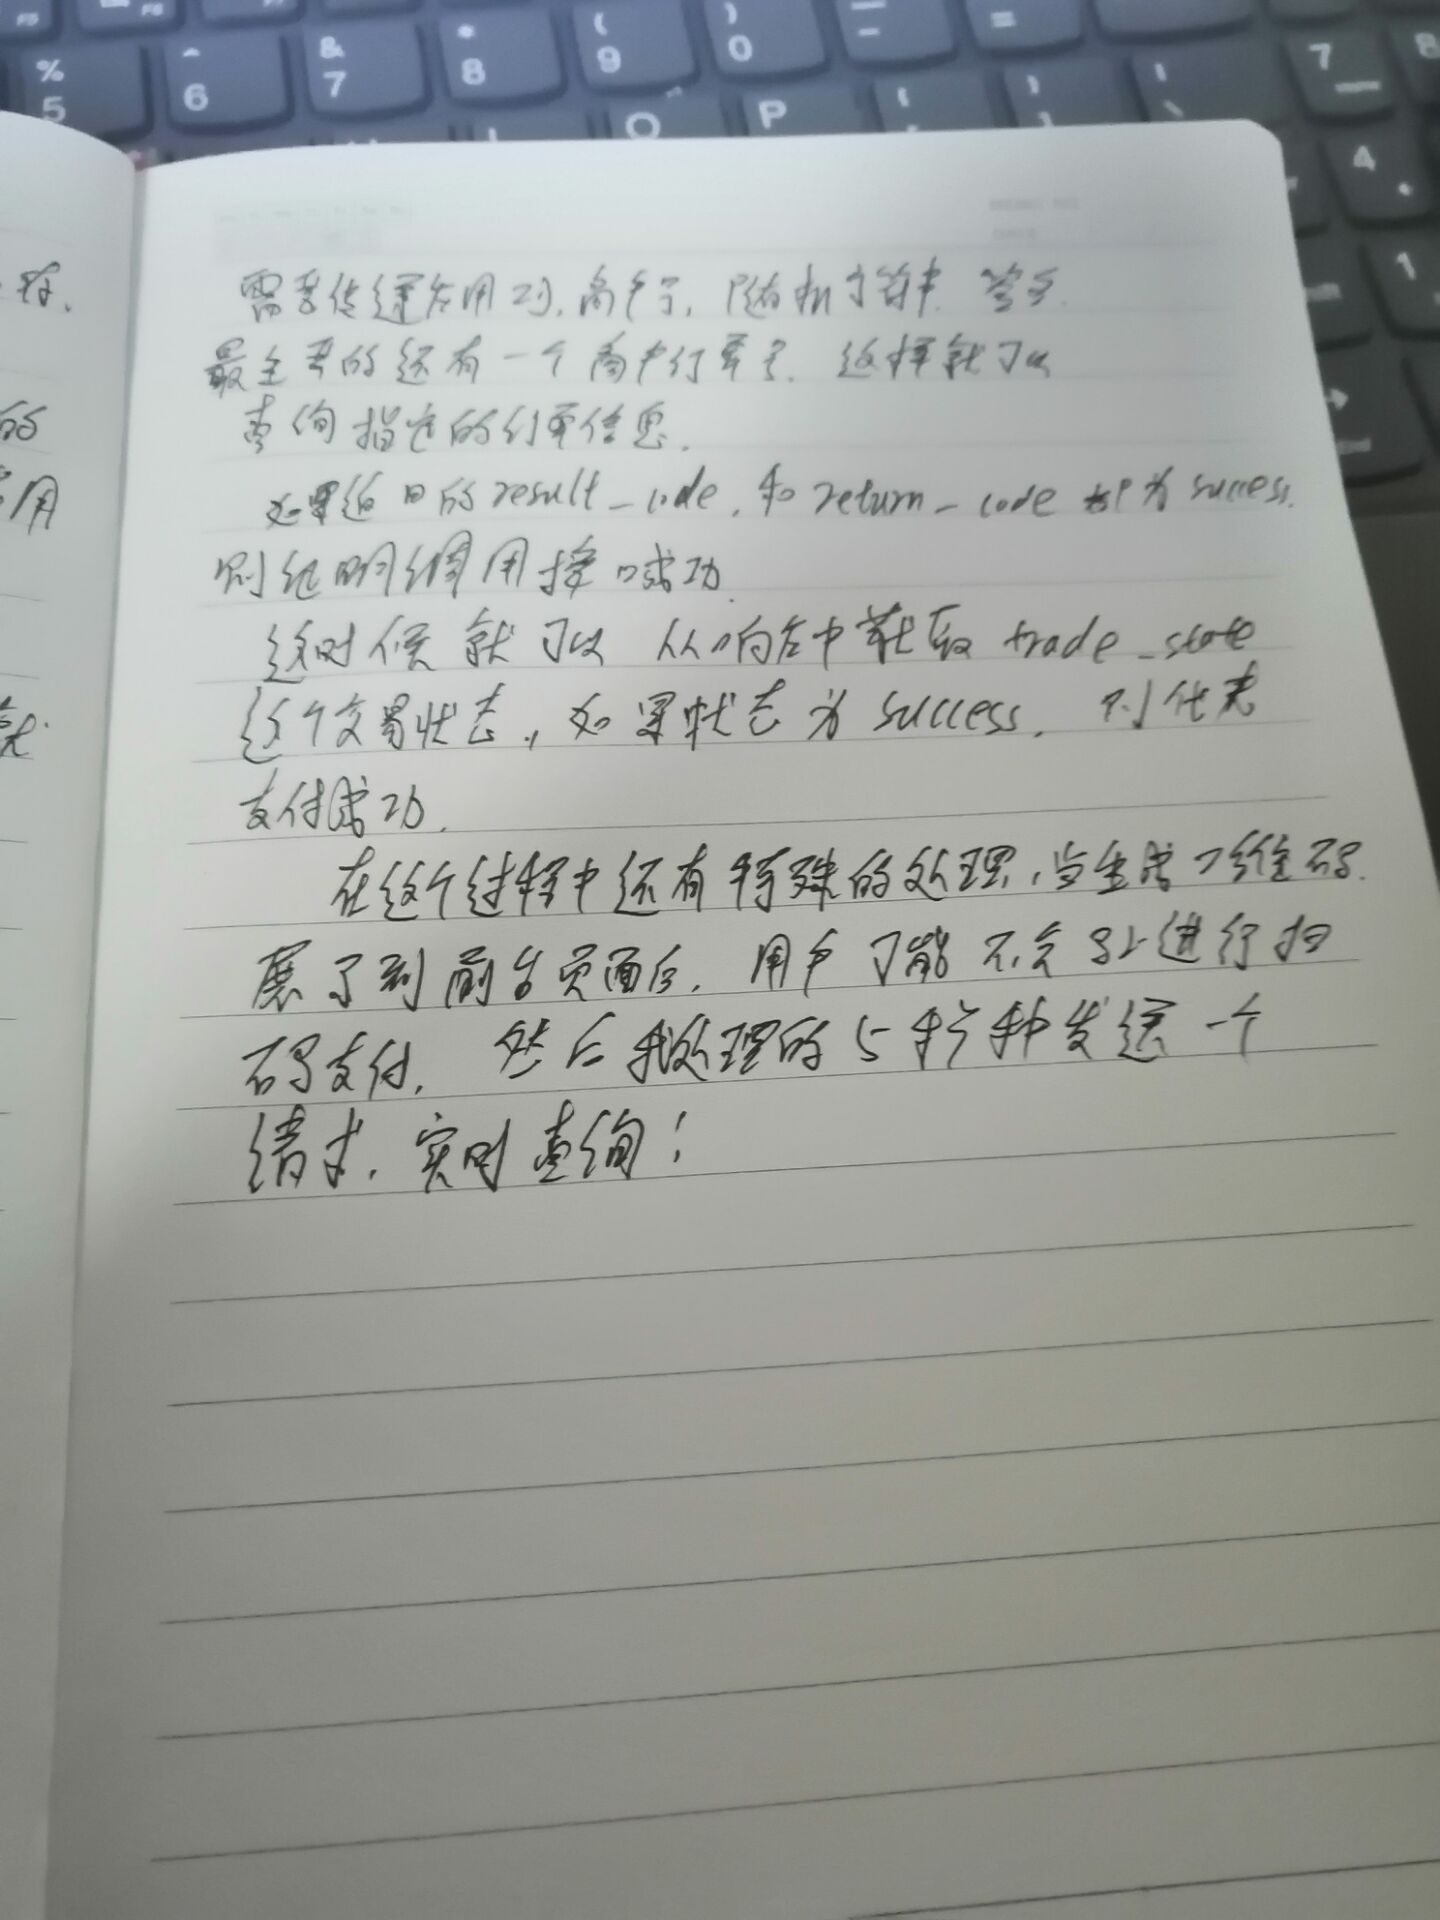 % 5
^ 6
& 7
* 8
( 9
) 0
O P
7 8
4
1
release.
的
用
就
需要传递应用ID,商户号,随机字符串,签名.
最主要的还有一个商户订单号.这样就可以
查询指定的订单信息.
如果返回的result_code,和return_code都为success.
则证明调用接口成功.
这时候就可以从响应中获取trade_state
这个交易状态,如果状态为success.则代表
支付成功.
在这个过程中还有特殊的处理,当生成二维码.
展示到前台页面后.用户可能不会马上进行扫
码支付.然后我处理的5秒钟发送一个
请求,实时查询!